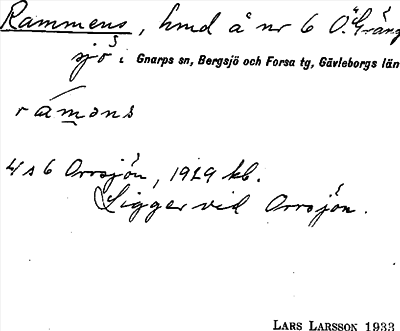 Rammens, hmd å nr 6 Ö. Gräng
sjö i Gnarps sn, Bergsjö och Forsa tg, Gävleborgs län
ramǝns
4 s 6 Orrsjön, 1929 kb.
Ligger vid Orrsjön.
LARS LARSSON 1933